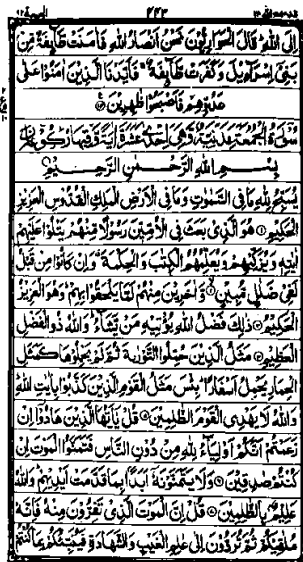 إِلَى اللّٰهِ قَالَ الْحَوَارِيُّونَ نَحْنُ أَنْصَارُ اللّٰهِ فَآمَنَتْ طَائِفَةٌ مِّنْ
بَنِي إِسْرَآءِيلَ وَكَفَرَتْ طَائِفَةٌ فَأَيَّدْنَا الَّذِينَ آمَنُوا عَلَى
عَدُوِّهِمْ فَأَصْبَحُوا ظَاهِرِينَ
سُورَةُ الْجُمُعَةِ مَدَنِيَّةٌ وَهِيَ إِحْدَى عَشْرَةَ آيَةً وَفِيهَا رُكُوعَانِ
بِسْمِ اللّٰهِ الرَّحْمٰنِ الرَّحِيمِ
يُسَبِّحُ لِلّٰهِ مَا فِي السَّمٰوٰتِ وَمَا فِي الْأَرْضِ الْمَلِكِ الْقُدُّوسِ الْعَزِيزِ
الْحَكِيمِ هُوَ الَّذِي بَعَثَ فِي الْأُمِّيِّينَ رَسُولًا مِّنْهُمْ يَتْلُوا عَلَيْهِمْ
اٰيٰتِهِ وَيُزَكِّيهِمْ وَيُعَلِّمُهُمُ الْكِتٰبَ وَالْحِكْمَةَ وَإِنْ كَانُوا مِنْ قَبْلُ
لَفِي ضَلٰلٍ مُّبِينٍ وَاٰخَرِينَ مِنْهُمْ لَمَّا يَلْحَقُوا بِهِمْ وَهُوَ الْعَزِيزُ
الْحَكِيمُ ذٰلِكَ فَضْلُ اللّٰهِ يُؤْتِيهِ مَنْ يَّشَآءُ وَاللّٰهُ ذُو الْفَضْلِ
الْعَظِيمِ مَثَلُ الَّذِينَ حُمِّلُوا التَّوْرٰىةَ ثُمَّ لَمْ يَحْمِلُوهَا كَمَثَلِ
الْحِمَارِ يَحْمِلُ أَسْفَارًا بِئْسَ مَثَلُ الْقَوْمِ الَّذِينَ كَذَّبُوا بِاٰيٰتِ اللّٰهِ
وَاللّٰهُ لَا يَهْدِي الْقَوْمَ الظّٰلِمِينَ قُلْ يٰأَيُّهَا الَّذِينَ هَادُوا إِنْ
زَعَمْتُمْ أَنَّكُمْ أَوْلِيَآءُ لِلّٰهِ مِنْ دُونِ النَّاسِ فَتَمَنَّوُا الْمَوْتَ إِنْ
كُنْتُمْ صٰدِقِينَ وَلَا يَتَمَنَّوْنَهُ أَبَدًا بِمَا قَدَّمَتْ أَيْدِيهِمْ وَاللّٰهُ
عَلِيمٌ بِالظّٰلِمِينَ قُلْ إِنَّ الْمَوْتَ الَّذِي تَفِرُّونَ مِنْهُ فَإِنَّهُ
مُلٰقِيكُمْ ثُمَّ تُرَدُّونَ إِلٰى عٰلِمِ الْغَيْبِ وَالشَّهَادَةِ فَيُنَبِّئُكُمْ بِمَا كُنْتُمْ